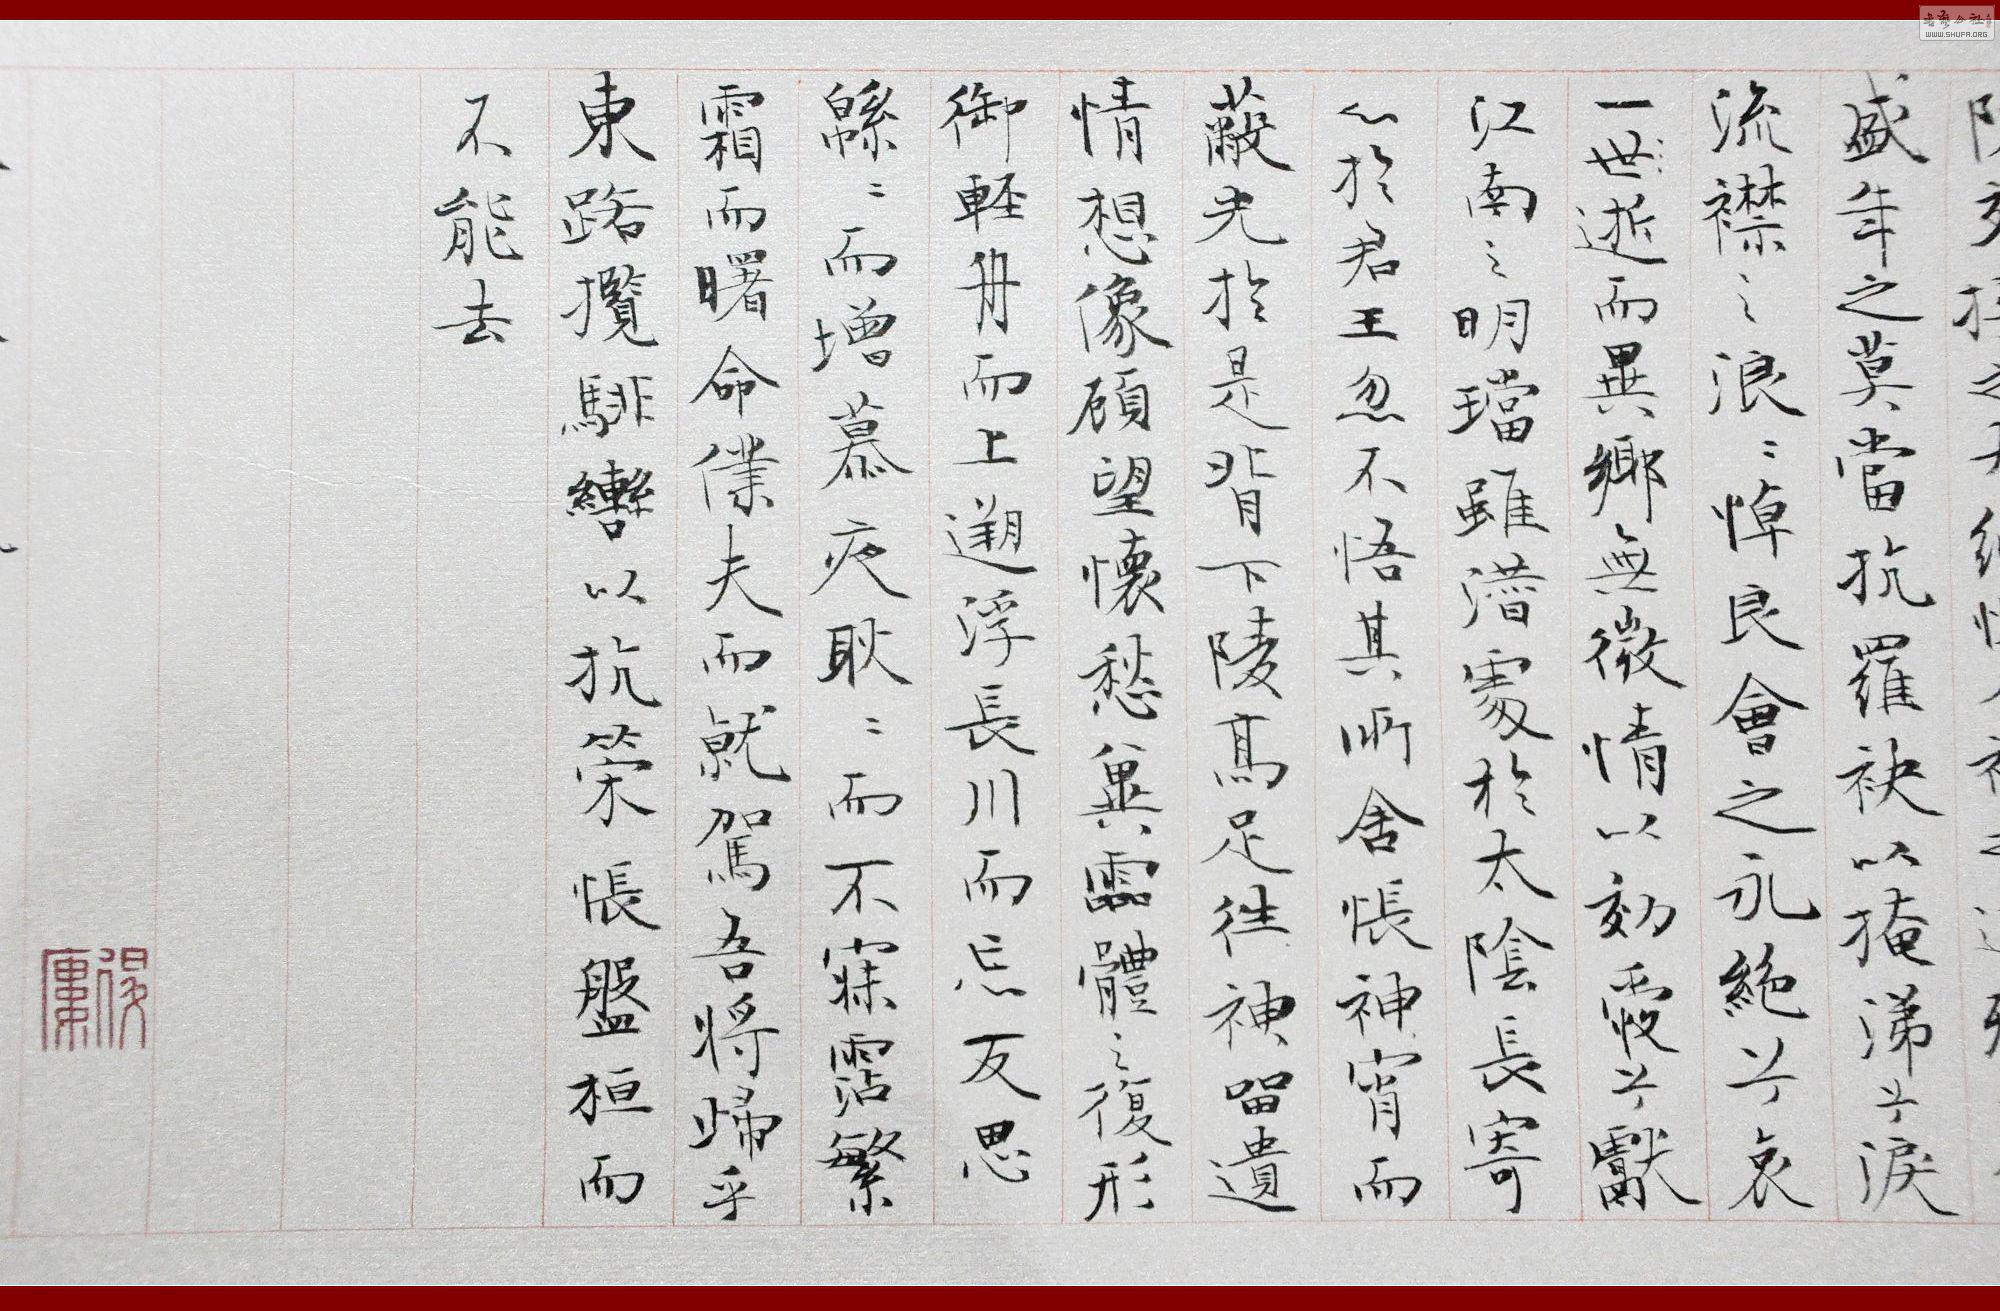 陳交接之大綱恨人神之道殊
盛年之莫當抗羅袂以掩涕兮淚
流襟之浪〻悼良會之永絶兮哀
一世逝而異鄉無微情以効愛兮獻
江南之明璫雖潛處於太陰長寄
心於君王忽不悟其所舍悵神宵而
蔽光於是背下陵高足往神留遺
情想像顧望懷愁冀靈體之復形
御軽舟而上遡浮長川而忘反思
緜〻而增慕夜耿〻而不寐霑繁
霜而曙命僕夫而就駕吾將歸乎
東路攬騑轡以抗策悵盤桓而
不能去
WWW.SHUFA.ORG